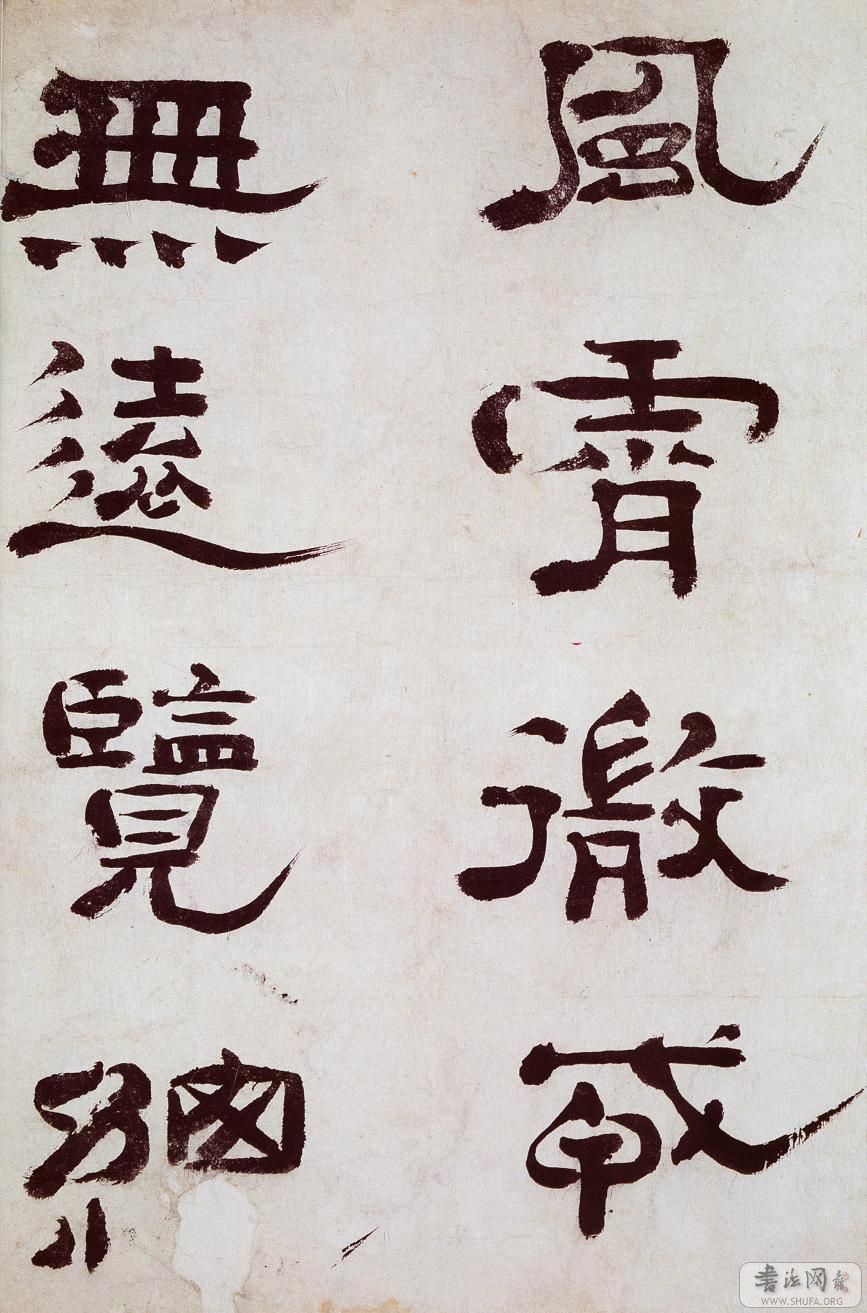 風霄徹
無遠覽細
書法网
WWW.SHUFA.ORG